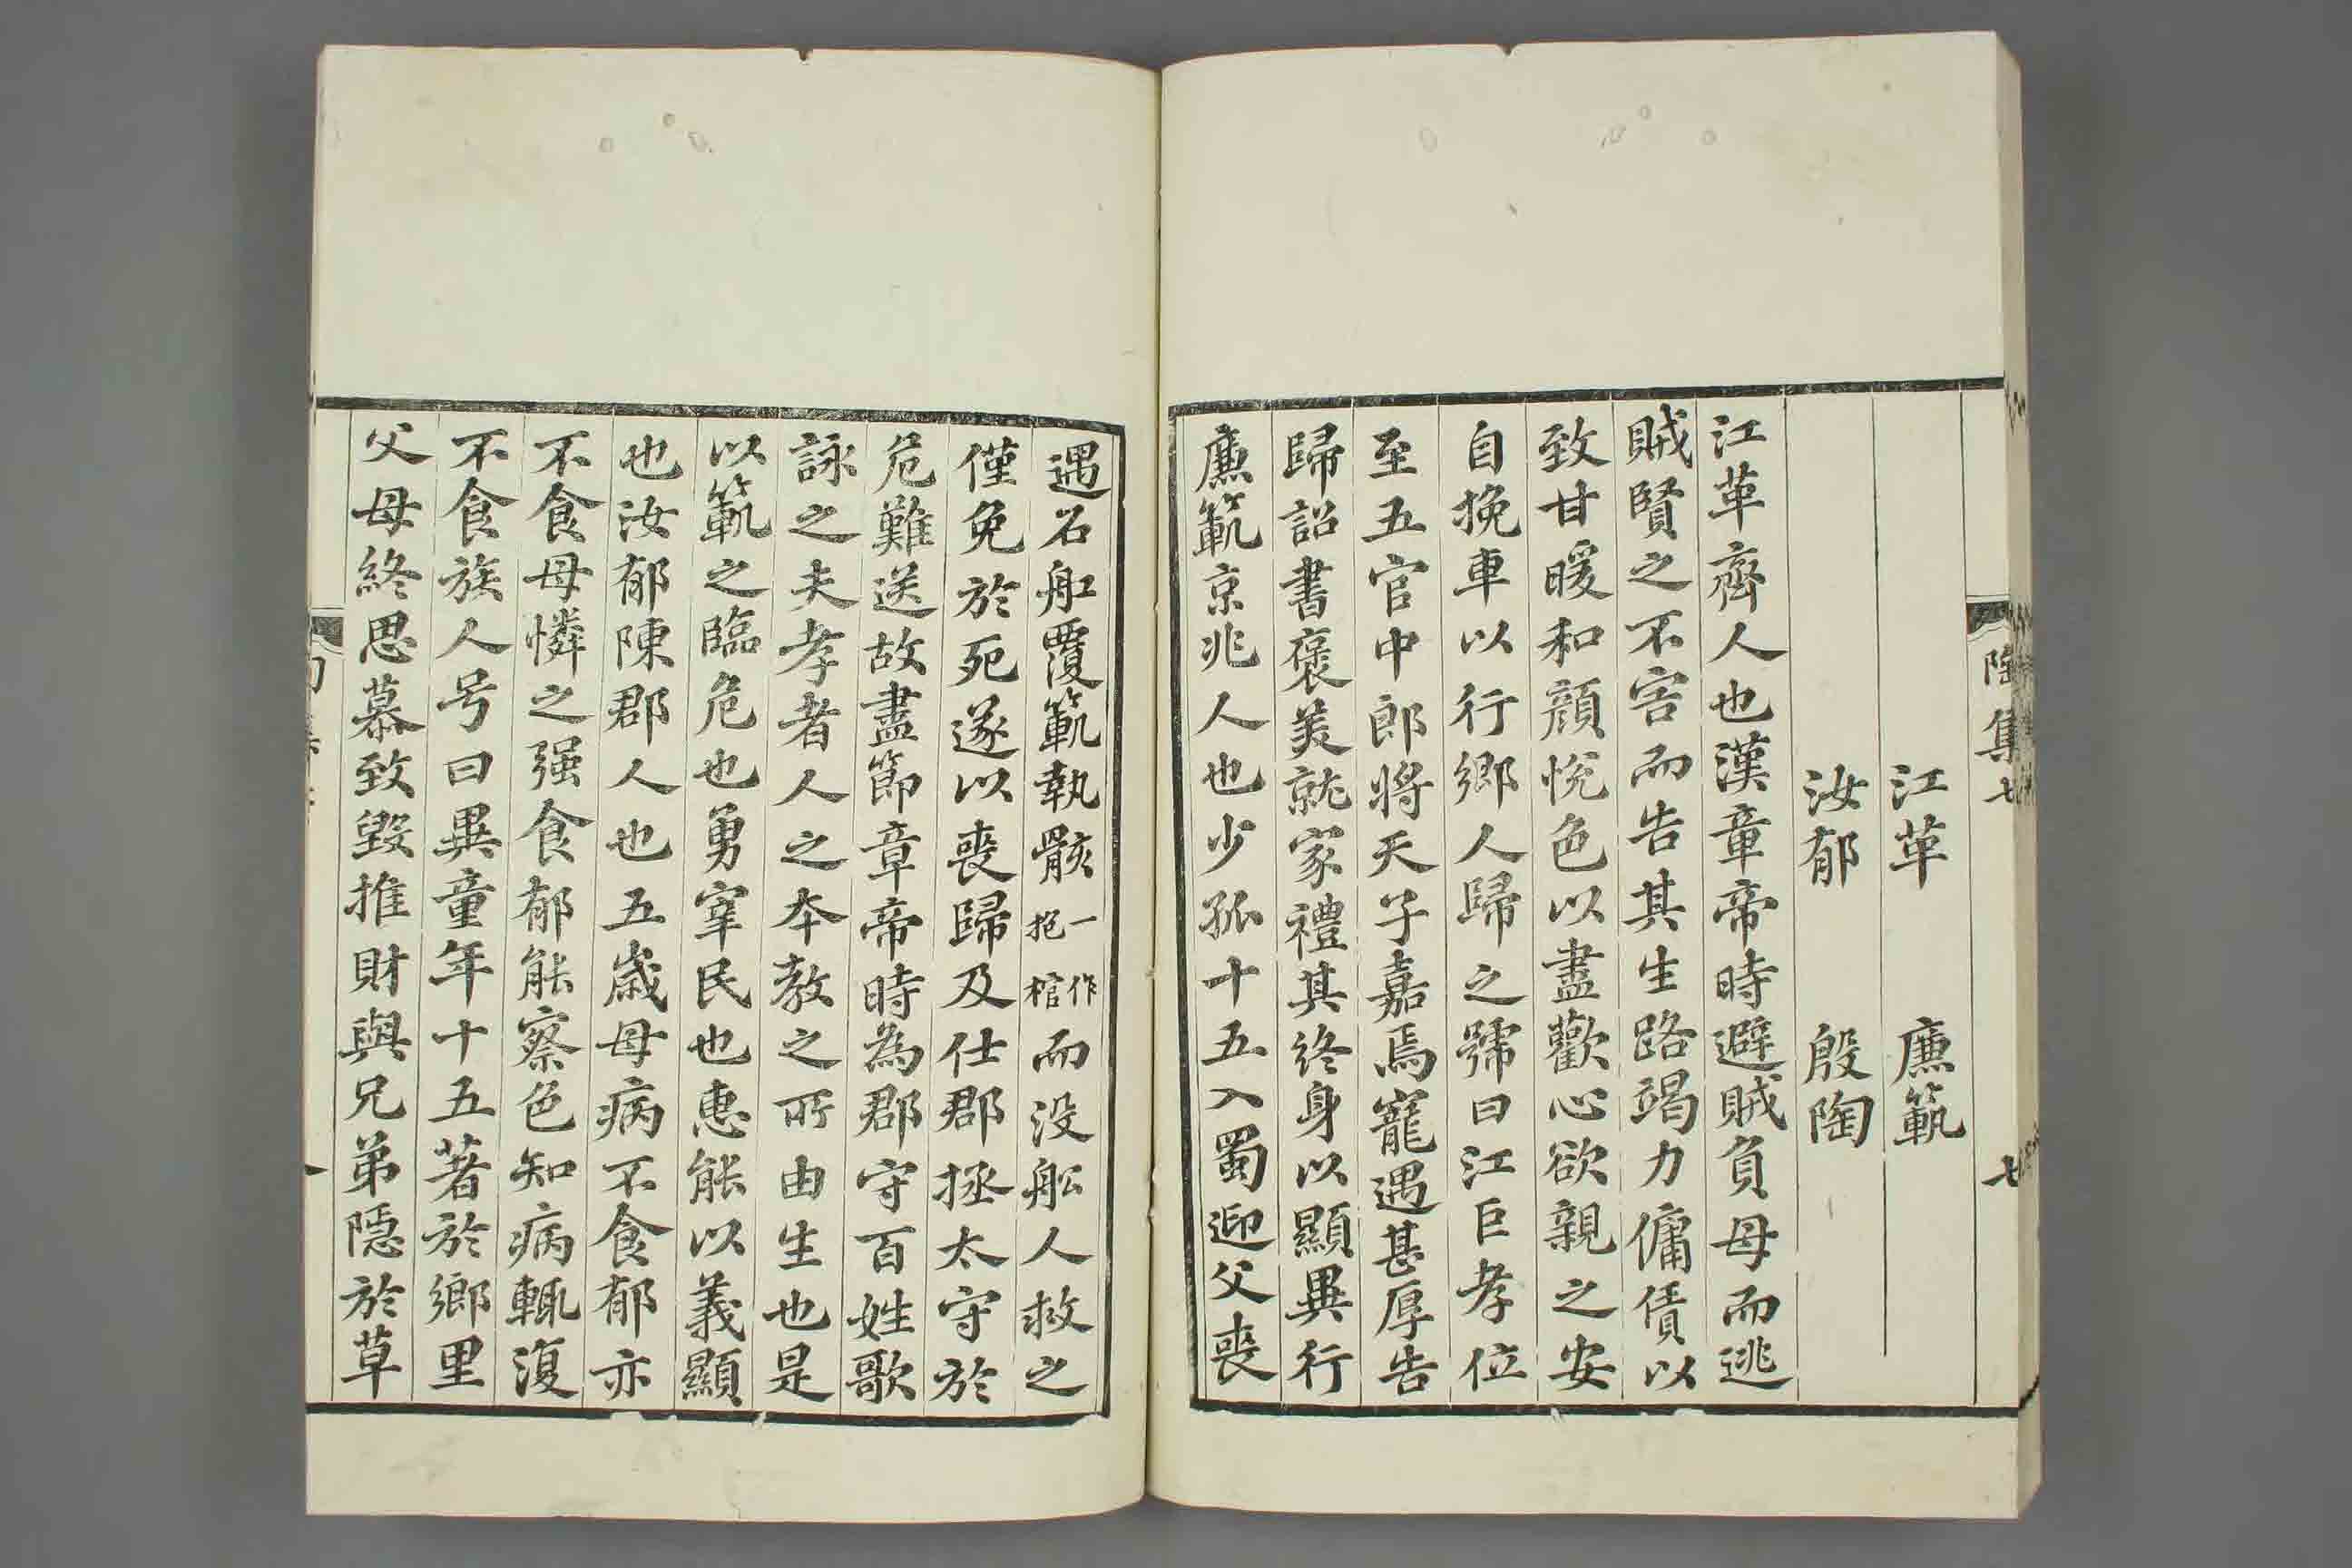 陶集七
七
江革　廉範
汝郁　殷陶
江革齊人也漢章帝時避賊負母而逃
賊賢之不害而告其生路竭力傭賃以
致甘暖和顔悅色以盡歡心欲親之安
自挽車以行鄉人歸之號曰江巨孝位
至五官中郎將天子嘉焉寵遇甚厚告
歸詔書褒美就家禮其終身以顯異行
廉範京兆人也少孤十五入蜀迎父喪
遇石舡覆範執骸一作抱棺而没舩人救之
僅免於死遂以喪歸及仕郡拯太守於
危難送故盡節章帝時為郡守百姓歌
詠之夫孝者人之本教之所由生也是
以範之臨危也勇宰民也惠能以義顯
也汝郁陳郡人也五歲母病不食郁亦
不食母憐之强食郁能察色知病輒復
不食族人号曰異童年十五著於鄉里
父母終思慕致毀推財與兄弟隱於草